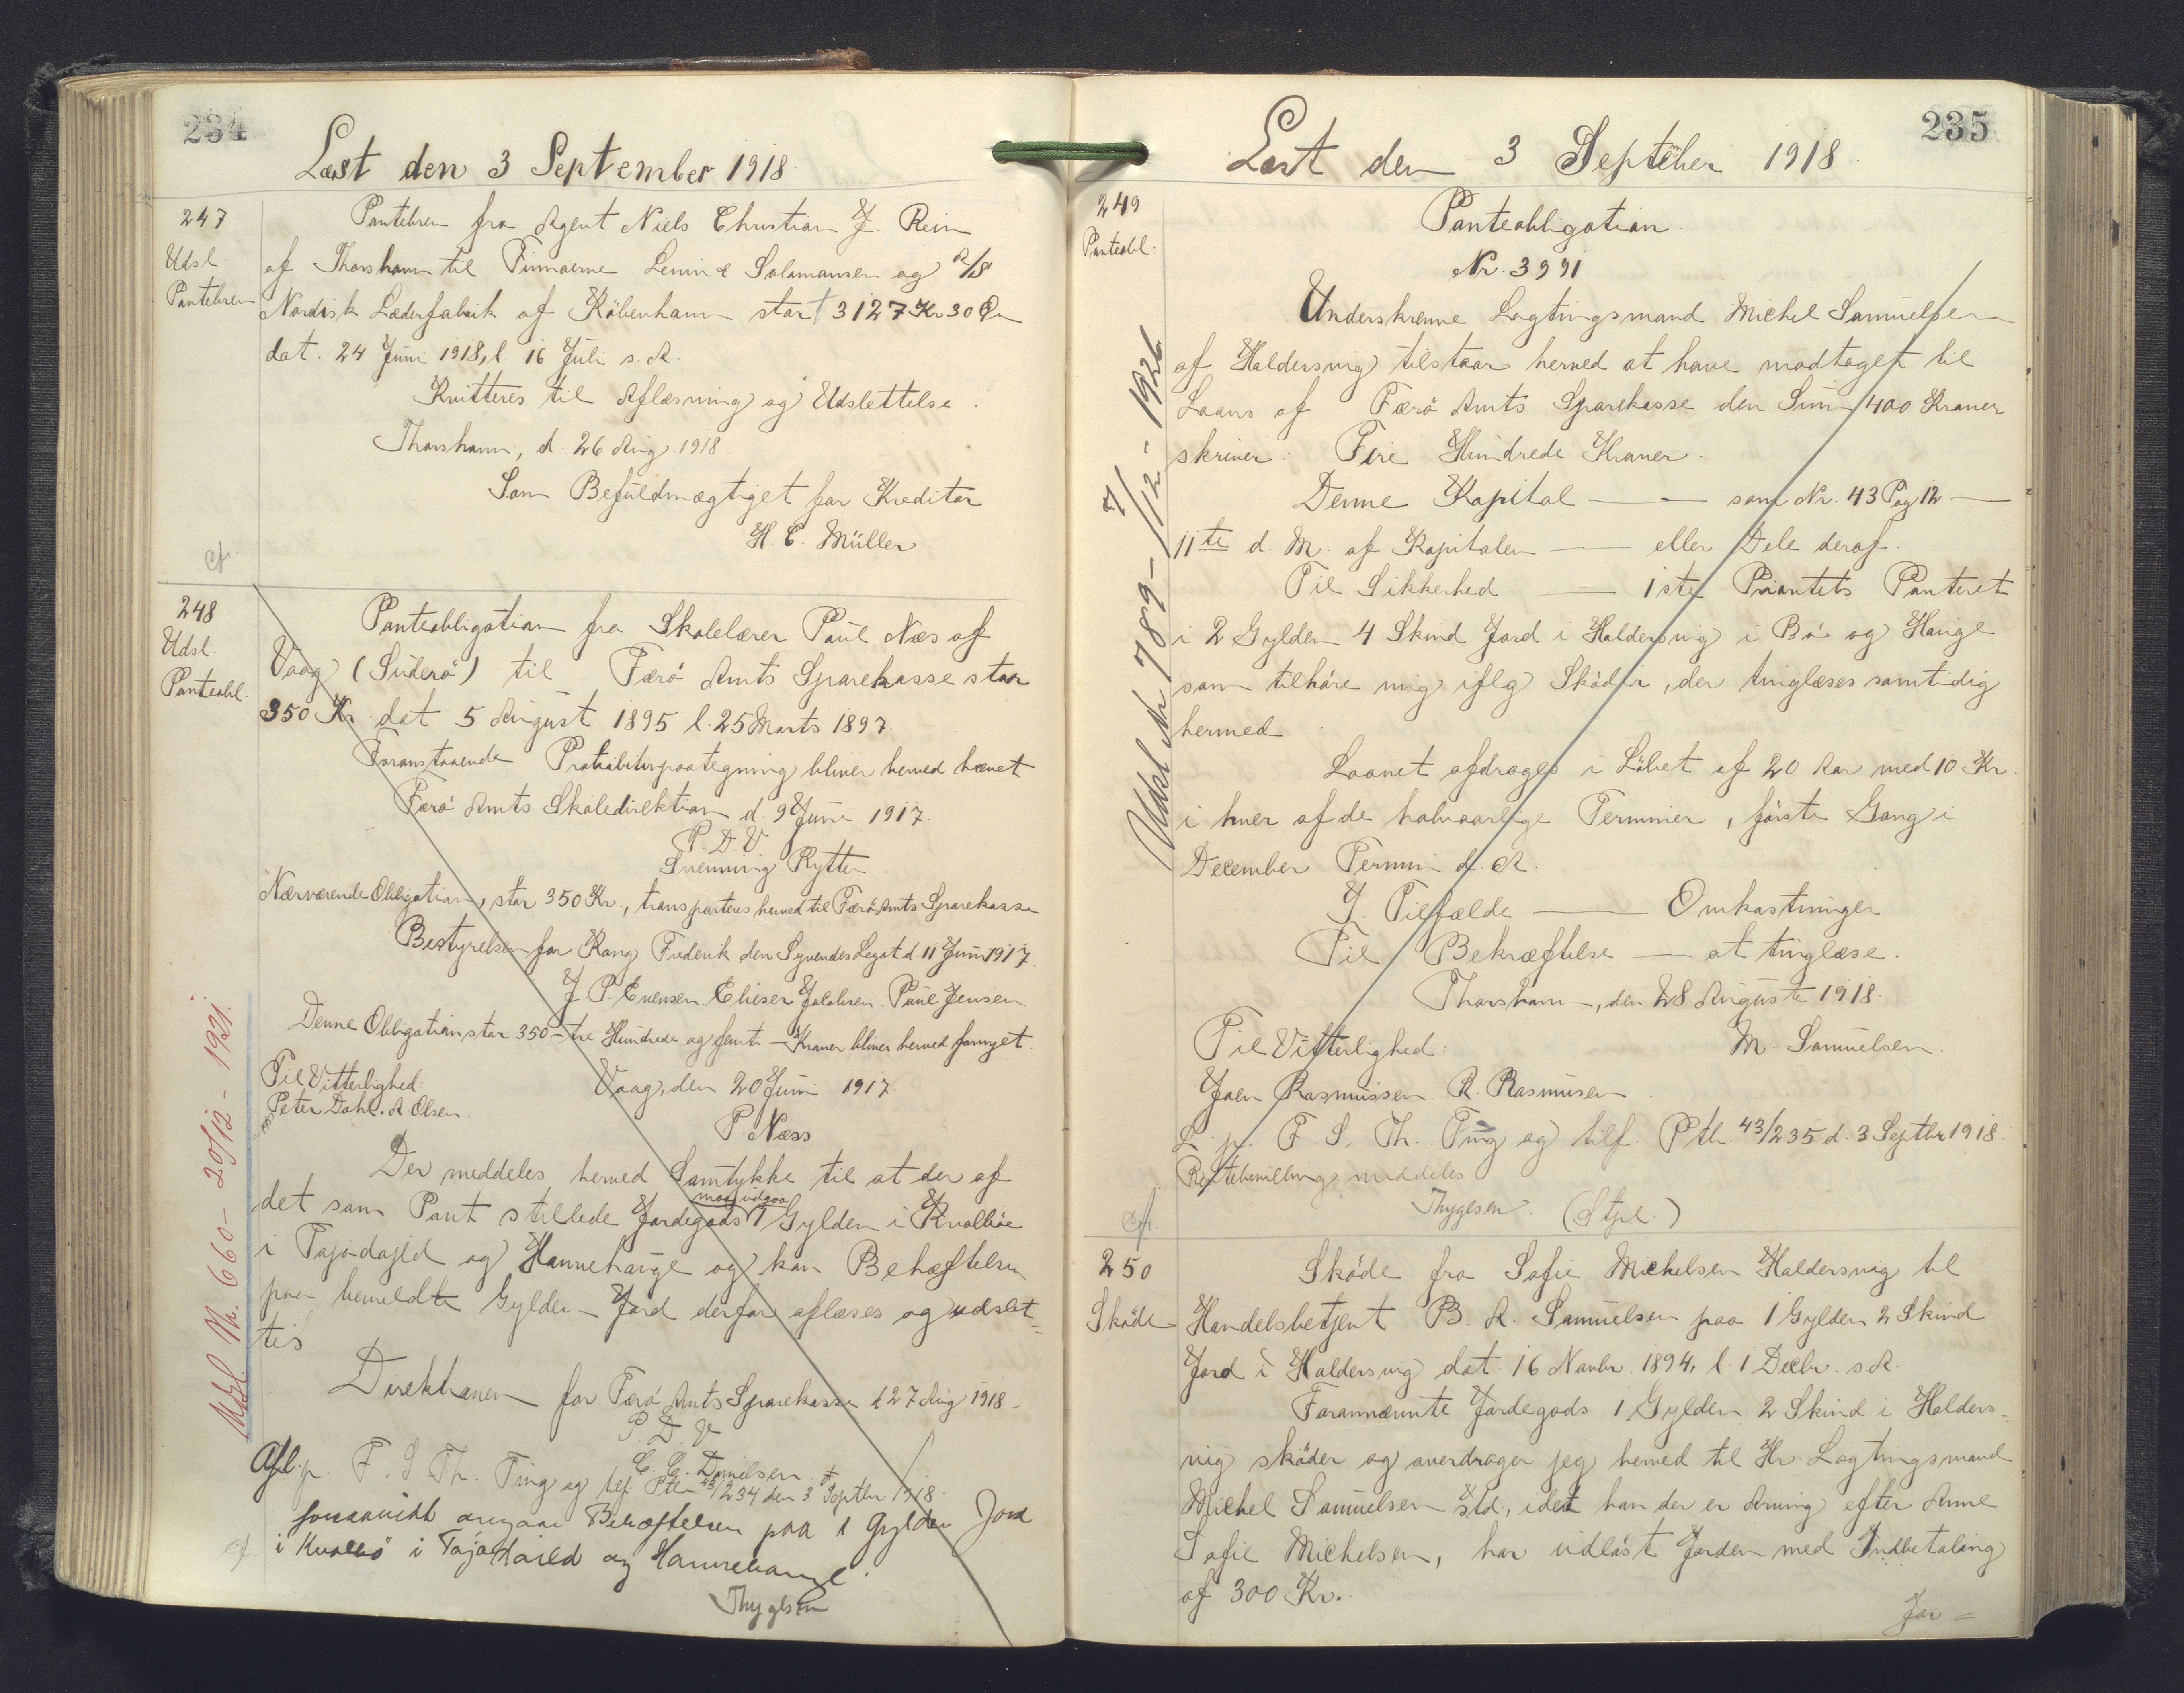 234
Læst den 3 September 1918.
247
Udsl.
Pantebrev
Pantebrev fra Agent Niels Christian J. Rein
af Thorshavn til Firmaerne Levin & Salomonsen og A/S
Nordisk Læderfabrik af København stort 3127 Kr 30 Øre
dat. 24 Juni 1918, l. 16 Juli s. A.
Kvitteres til Aflæsning og Udslettelse.
Thorshavn, d. 26 Aug. 1918.
Som Befuldmægtiget for Kreditor
H. C. Müller.
cf.
248
Udsl.
Panteobl.
Panteobligation fra Skolelærer Paul Næs af
Vaag (Suderö) til Færö Amts Sparekasse stor
350 Kr. dat 5 August 1895 l. 25 Marts 1897.
Foranstaaende Prohibitivpaategning bliver herved hævet
Færö Amts Skoledirektion d. 9 Juni 1917.
P. D. V
Svenning Rytter.
Nærværende Obligation, stor 350 Kr., transporteres herved til Færö Amts Sparekasse
Bestyrelsen for Kong Frederik den Syvendes Legat d. 11 Juni 1917.
J. P. Evensen. Elieser Jacobsen. Paul Jensen
Denne Obligation stor 350 – tre Hundrede og femti – Kroner bliver herved fornyet.
Til Vitterlighed:
Vaag, den 20 Juni 1917.
Peter Dahl. A Olsen.
P. Næss
Der meddeles herved Samtykke til at der af
det som Pant stillede Jordegods maa udgaa 1 Gylden i Knolbøe
i og Hannehauge og kan Behæftelsen
paa bemeldte Gylden Jord derfor aflæses og udslet=
tes
Direktionen for Færö Amts Sparekasse d 27 Aug 1918.
P. D. V
C. C. Danielsen
Afl. p. F. S. Th. Ting og tilf. Ptbr 43/234 den 3 Septbr 1918.
forsaavidt angaar Behæftelsen paa 1 Gylden Jord
i i og Hannehauge.
Thygesen
cf.
Udsl. Nr. 660 - 20/12 - 1921.
235
Læst den 3 September 1918
249
Panteobl.
Panteobligation.
Nr. 3991
Underskrevne Lagtingsmand Michel Samuelsen
af Haldersvig tilstaar herved at have modtaget til
Laans af Færö Amts Sparekasse den Sum 400 Kroner
skriver: Fire Hundrede Kroner.
Denne Kapital —— som Nr. 43 Pag 12 ——
11te d. M. af Kapitalen —— eller Dele deraf.
Til Sikkerhed —— 1ste Prioritets Panteret
i 2 Gylden 4 Skind Jord i Haldersvig i Bö og Hauge
som tilhöre mig iflg Sköder, der tinglæses samtidig
hermed
Laanet afdrages i Löbet af 20 Aar med 10 Kr.
i hver af de halvaarlige Terminer, förste Gang i
December Termin d. A.
I. Tilfælde —— Omkostninger
Til Bekræftelse — at tinglæse.
Thorshavn, den 28 August 1918.
Til Vitterlighed:
M. Samuelsen.
Joen Rasmussen. R. Rasmussen
L. p. F. S. Th. Ting og tilf. Ptbr 43/235 d. 3 Septbr 1918.
Rentebevilling meddeles
Thygesen. (Stpl.)
cfr.
Udsl Nr 789 - 7/12 - 1926
250
Sköde
Sköde fra Sofie Michelsen Haldersvig til
Handelsbetjent B. A. Samuelsen paa 1 Gylden 2 Skind
Jord i Haldersvig dat. 16 Novbr. 1894, l. 1 Decbr. s A.
Forannævnte Jordegods 1 Gylden 2 Skind i Halders=
vig sköder og overdrager jeg herved til Hr. Lagtingsmand
Michel Samuelsen sstd, idet han der er Arving efter Anne
Sofie Michelsen, har udlöst Jorden med Indbetaling
af 300 Kr.
Jor=